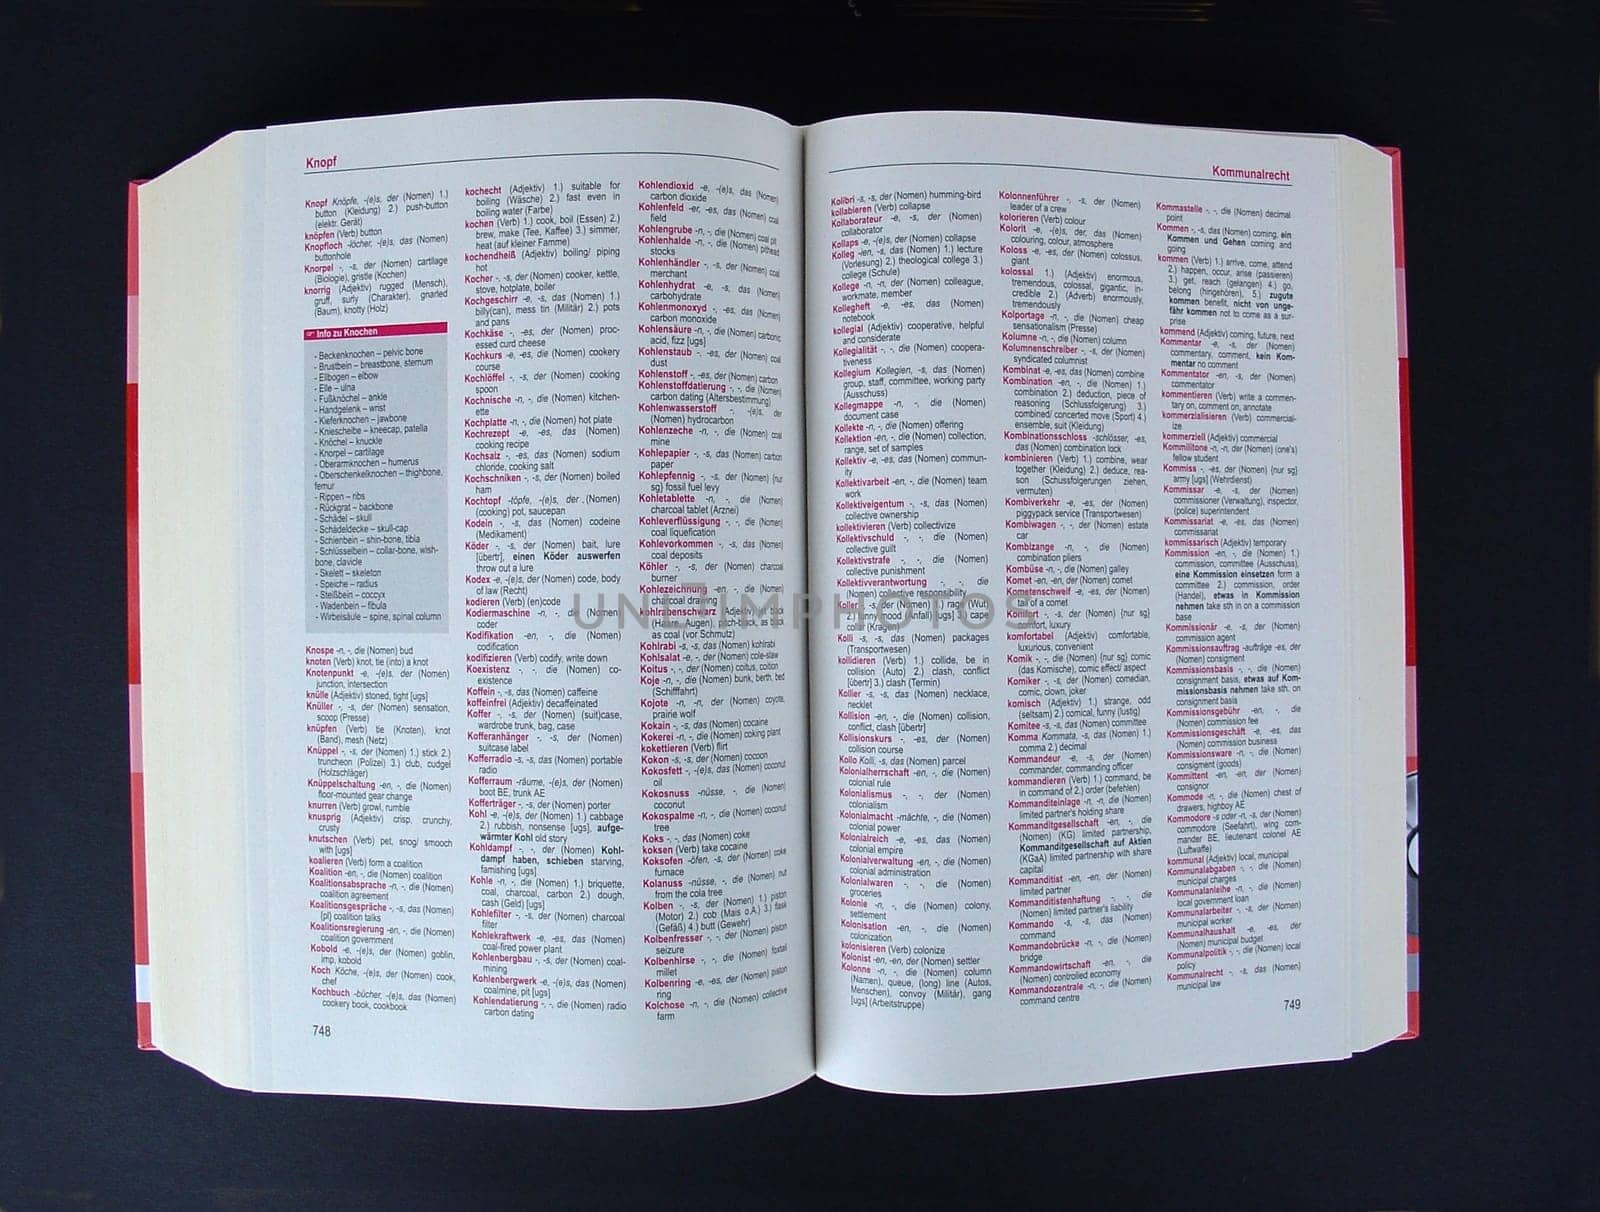 Knopf
Knopf Knöpfe, -(e)s, der (Nomen) 1.)
button (Kleidung) 2.) push-button
(elektr. Gerät)
knöpfen (Verb) button
Knopfloch -löcher, -(e)s, das (Nomen)
buttonhole
Knorpel -, -s, der (Nomen) cartilage
(Biologie), gristle (Kochen)
knorrig (Adjektiv) rugged (Mensch),
gruff, surly (Charakter), gnarled
(Baum), knotty (Holz)
Info zu Knochen
- Beckenknochen – pelvic bone
- Brustbein – breastbone, sternum
- Ellbogen – elbow
- Elle – ulna
- Fußknöchel – ankle
- Handgelenk – wrist
- Kieferknochen – jawbone
- Kniescheibe – kneecap, patella
- Knöchel – knuckle
- Knorpel – cartilage
- Oberarmknochen – humerus
- Oberschenkelknochen – thighbone,
femur
- Rippen – ribs
- Rückgrat – backbone
- Schädel – skull
- Schädeldecke – skull-cap
- Schienbein – shin-bone, tibia
- Schlüsselbein – collar-bone, wish-
bone, clavicle
- Skelett – skeleton
- Speiche – radius
- Steißbein – coccyx
- Wadenbein – fibula
- Wirbelsäule – spine, spinal column
Knospe -n, -, die (Nomen) bud
knoten (Verb) knot, tie (into) a knot
Knotenpunkt -e, -(e)s, der (Nomen)
junction, intersection
knülle (Adjektiv) stoned, tight [ugs]
Knüller -, -s, der (Nomen) sensation,
scoop (Presse)
knüpfen (Verb) tie (Knoten), knot
(Band), mesh (Netz)
Knüppel -, -s, der (Nomen) 1.) stick 2.)
truncheon (Polizei) 3.) club, cudgel
(Holzschläger)
Knüppelschaltung -en, -, die (Nomen)
floor-mounted gear change
knurren (Verb) growl, rumble
knusprig (Adjektiv) crisp, crunchy,
crusty
knutschen (Verb) pet, snog/ smooch
with [ugs]
koalieren (Verb) form a coalition
Koalition -en, -, die (Nomen) coalition
Koalitionsabsprache -n, -, die (Nomen)
coalition agreement
Koalitionsgespräche -, -s, das (Nomen)
[pl] coalition talks
Koalitionsregierung -en, -, die (Nomen)
coalition government
Kobold -e, -(e)s, der (Nomen) goblin,
imp, kobold
Koch Köche, -(e)s, der (Nomen) cook,
chef
Kochbuch -bücher, -(e)s, das (Nomen)
cookery book, cookbook
748
kochecht (Adjektiv) 1.) suitable for
boiling (Wäsche) 2.) fast even in
boiling water (Farbe)
kochen (Verb) 1.) cook, boil (Essen) 2.)
brew, make (Tee, Kaffee) 3.) simmer,
heat (auf kleiner Famme)
kochendheiß (Adjektiv) boiling/ piping
hot
Kocher -, -s, der (Nomen) cooker, kettle,
stove, hotplate, boiler
Kochgeschirr -e, -s, das (Nomen) 1.)
billy(can), mess tin (Militär) 2.) pots
and pans
Kochkäse -, -es, der (Nomen) proc-
essed curd cheese
Kochkurs -e, -es, der (Nomen) cookery
course
Kochlöffel -, -s, der (Nomen) cooking
spoon
Kochnische -n, -, die (Nomen) kitchen-
ette
Kochplatte -n, -, die (Nomen) hot plate
Kochrezept -e, -es, das (Nomen)
cooking recipe
Kochsalz -, -es, das (Nomen) sodium
chloride, cooking salt
Kochschniken -, -s, der (Nomen) boiled
ham
Kochtopf -töpfe, -(e)s, der (Nomen)
(cooking) pot, saucepan
Kodein -, -s, das (Nomen) codeine
(Medikament)
Köder -, -s, der (Nomen) bait, lure
[übertr], einen Köder auswerfen
throw out a lure
Kodex -e, -(e)s, der (Nomen) code, body
of law (Recht)
kodieren (Verb) (en)code
Kodiermaschine -n, -, die (Nomen)
coder
Kodifikation -en, -, die (Nomen)
codification
kodifizieren (Verb) codify, write down
Koexistenz -, -, die (Nomen) co-
existence
Koffein -, -s, das (Nomen) caffeine
koffeinfrei (Adjektiv) decaffeinated
Koffer -, -s, der (Nomen) (suit)case,
wardrobe trunk, bag, case
Kofferanhänger -, -s, der (Nomen)
suitcase label
Kofferradio -s, -s, das (Nomen) portable
radio
Kofferraum -räume, -(e)s, der (Nomen)
boot BE, trunk AE
Kofferträger -, -s, der (Nomen) porter
Kohl -e, -(e)s, der (Nomen) 1.) cabbage
2.) rubbish, nonsense [ugs], aufge-
wärmter Kohl old story
Kohldampf -, -, der (Nomen) Kohl-
dampf haben, schieben starving,
famishing [ugs]
Kohle -n, -, die (Nomen) 1.) briquette,
coal, charcoal, carbon 2.) dough,
cash (Geld) [ugs]
Kohlefilter -, -s, der (Nomen) charcoal
filter
Kohlekraftwerk -e, -es, das (Nomen)
coal-fired power plant
Kohlenbergbau -, -s, der (Nomen) coal-
mining
Kohlenbergwerk -e, -(e)s, das (Nomen)
coalmine, pit [ugs]
Kohlendatierung -, -, die (Nomen) radio
carbon dating
Kohlendioxid -e, -(e)s, das (Nomen)
carbon dioxide
Kohlenfeld -er, -es, das (Nomen) coal
field
Kohlengrube -n, -, die (Nomen) coal pit
Kohlenhalde -n, -, die (Nomen)
stocks
Kohlenhändler -, -s, der (Nomen) coal
merchant
Kohlenhydrat -e, -s, das (Nomen)
carbohydrate
Kohlenmonoxyd -, -es, das (Nomen)
carbon monoxide
Kohlensäure -n, -, die (Nomen) carbonic
acid, fizz [ugs]
Kohlenstaub -, -es, der (Nomen) coal
dust
Kohlenstoff -, -es, der (Nomen) carbon
Kohlenstoffdatierung -, -, die (Nomen)
carbon dating (Altersbestimmung)
Kohlenwasserstoff -, -(e)s, der
(Nomen) hydrocarbon
Kohlenzeche -n, -, die (Nomen) coal
mine
Kohlepapier -, -s, das (Nomen) carbon
paper
Kohlepfennig -, -s, der (Nomen) {nur
sg} fossil fuel levy
Kohletablette -n, -, die (Nomen)
charcoal tablet (Arznei)
Kohleverflüssigung -, -, die (Nomen)
coal liquefication
Kohlevorkommen -, -s, das (Nomen)
coal deposits
Köhler -, -s, der (Nomen) charcoal
burner
Kohlezeichnung -en, -, die (Nomen)
charcoal drawing
kohlrabenschwarz (Adjektiv) as black
as coal (vor Schmutz)
Kohlrabi -s, -s, das (Nomen) kohlrabi
Kohlsalat -e, -, der (Nomen) cole-slaw
Koitus -, -, der (Nomen) coitus, coition
Koje -n, -, die (Nomen) bunk, berth, bed
(Schifffahrt)
Kojote -n, -n, der (Nomen) coyote,
prairie wolf
Kokain -, -s, das (Nomen) cocaine
Kokerei -n, -, die (Nomen) coking plant
kokettieren (Verb) flirt
Kokon -s, -s, der (Nomen) cocoon
Kokosfett -, -(e)s, das (Nomen) coconut
oil
Kokosnuss -nüsse, -, die (Nomen)
coconut
Kokospalme -n, -, die (Nomen) coconut
tree
Koks -, -, das (Nomen) coke
koksen (Verb) take cocaine
Koksofen -öfen, -s, der (Nomen) coke
furnace
Kolanuss -nüsse, -, die (Nomen) nut
from the cola tree
Kolben -, -s, der (Nomen) 1.) piston
(Motor) 2.) cob (Mais o.Ä.) 3.) flask
(Gefäß) 4.) butt (Gewehr)
Kolbenfresser -, -, der (Nomen) piston
seizure
Kolbenhirse -, -, die (Nomen) foxtail
millet
Kolbenring -e, -es, der (Nomen) piston
ring
Kolchose -n, -, die (Nomen) collective
farm
Kommunalrecht
Kolibri -s, -s, der (Nomen) humming-bird
kollabieren (Verb) collapse
Kollaborateur -e, -s, der (Nomen)
collaborator
Kollaps -e, -(e)s, der (Nomen) collapse
Kolleg -ien, -s, das (Nomen) 1.) lecture
(Vorlesung) 2.) theological college 3.)
college (Schule)
Kollege -n, -n, der (Nomen) colleague,
workmate, member
Kollegheft -e, -es, das (Nomen)
notebook
kollegial (Adjektiv) cooperative, helpful
and considerate
Kollegialität -, -, die (Nomen) coopera-
tiveness
Kollegium Kollegien, -s, das (Nomen)
group, staff, committee, working party
(Ausschuss)
Kollegmappe -n, -, die (Nomen)
document case
Kollekte -n, -, die (Nomen) offering
Kollektion -en, -, die (Nomen) collection,
range, set of samples
Kollektiv -e, -es, das (Nomen) commun-
ity
Kollektivarbeit -en, -, die (Nomen) team
work
Kollektiveigentum -, -s, das (Nomen)
collective ownership
kollektivieren (Verb) collectivize
Kollektivschuld -, -, die (Nomen)
collective guilt
Kollektivstrafe -, -, die (Nomen)
collective punishment
Kollektivverantwortung -, -, die
(Nomen) collective responsibility
Koller -, -s, der (Nomen) 1.) rage (Wut)
2.) funny mood (Anfall) [ugs] 3.) cape,
collar (Kragen)
Kolli -s, -s, das (Nomen) packages
(Transportwesen)
kollidieren (Verb) 1.) collide, be in
collision (Auto) 2.) clash, conflict
[übertr] 3.) clash (Termin)
Kollier -s, -s, das (Nomen) necklace,
necklet
Kollision -en, -, die (Nomen) collision,
conflict, clash [übertr]
Kollisionskurs -, -es, der (Nomen)
collision course
Kollo Kolli, -s, das (Nomen) parcel
Kolonialherrschaft -en, -, die (Nomen)
colonial rule
Kolonialismus -, -, der (Nomen)
colonialism
Kolonialmacht -mächte, -, die (Nomen)
colonial power
Kolonialreich -e, -es, das (Nomen)
colonial empire
Kolonialverwaltung -en, -, die (Nomen)
colonial administration
Kolonialwaren -, -, die (Nomen)
groceries
Kolonie -n, -, die (Nomen) colony,
settlement
Kolonisation -en, -, die (Nomen)
colonization
kolonisieren (Verb) colonize
Kolonist -en, -en, der (Nomen) settler
Kolonne -n, -, die (Nomen) column
(Namen), queue, (long) line (Autos,
Menschen), convoy (Militär), gang
[ugs] (Arbeitstruppe)
Kolonnenführer -, -s, der (Nomen)
leader of a crew
kolorieren (Verb) colour
Kolorit -e, -(e)s, der, das (Nomen)
colouring, colour, atmosphere
Koloss -e, -es, der (Nomen) colossus,
giant
kolossal 1.) (Adjektiv) enormous,
tremendous, colossal, gigantic, in-
credible 2.) (Adverb) enormously,
tremendously
Kolportage -n, -, die (Nomen) cheap
sensationalism (Presse)
Kolumne -n, -, die (Nomen) column
Kolumnenschreiber -, -s, der (Nomen)
syndicated columnist
Kombinat -e, -es, das (Nomen) combine
Kombination -en, -, die (Nomen) 1.)
combination 2.) deduction, piece of
reasoning (Schlussfolgerung) 3.)
combined/ concerted move (Sport) 4.)
ensemble, suit (Kleidung)
Kombinationsschloss -schlösser, -es,
das (Nomen) combination lock
kombinieren (Verb) 1.) combine, wear
together (Kleidung) 2.) deduce, rea-
son (Schussfolgerungen ziehen,
vermuten)
Kombiverkehr -e, -es, der (Nomen)
piggypack service (Transportwesen)
Kombiwagen -, -, der (Nomen) estate
car
Kombizange -n, -, die (Nomen)
combination pliers
Kombüse -n, -, die (Nomen) galley
Komet -en, -en, der (Nomen) comet
Kometenschweif -e, -es, der (Nomen)
tail of a comet
Komfort -, -s, der (Nomen) {nur sg}
comfort, luxury
komfortabel (Adjektiv) comfortable,
luxurious, convenient
Komik -, -, die (Nomen) {nur sg} comic
(das Komische), comic effect/ aspect
Komiker -, -s, der (Nomen) comedian,
comic, clown, joker
komisch (Adjektiv) 1.) strange, odd
(seltsam) 2.) comical, funny (lustig)
Komitee -s, -s, das (Nomen) committee
Komma Kommata, -s, das (Nomen) 1.)
comma 2.) decimal
Kommandeur -e, -s, der (Nomen)
commander, commanding officer
kommandieren (Verb) 1.) command, be
in command of 2.) order (befehlen)
Kommanditeinlage -n, -n, die (Nomen)
limited partner's holding share
Kommanditgesellschaft -en, -, die
(Nomen) (KG) limited partnership,
Kommanditgesellschaft auf Aktien
(KGaA) limited partnership with share
capital
Kommanditist -en, -en, der (Nomen)
limited partner
Kommanditistenhaftung -, -, die
(Nomen) limited partner's liability
Kommando -s, -s, das (Nomen)
command
Kommandobrücke -n, -, die (Nomen)
bridge
Kommandowirtschaft -en, -, die
(Nomen) controlled economy
Kommandozentrale -n, -, die (Nomen)
command centre
Kommastelle -, -, die (Nomen) decimal
point
Kommen -, -s, das (Nomen) coming, ein
Kommen und Gehen coming and
going
kommen (Verb) 1.) arrive, come, attend
2.) happen, occur, arise (passieren)
3.) get, reach (gelangen) 4.) go,
belong (hingehören), 5.) zugute
kommen benefit, nicht von unge-
fähr kommen not to come as a sur-
prise
kommend (Adjektiv) coming, future, next
Kommentar -e, -s, der (Nomen)
commentary, comment, kein Kom-
mentar no comment
Kommentator -en, -s, der (Nomen)
commentator
kommentieren (Verb) write a commen-
tary on, comment on, annotate
kommerzialisieren (Verb) commercial-
ize
kommerziell (Adjektiv) commercial
Kommilitone -n, -n, der (Nomen) (one's)
fellow student
Kommiss -, -es, der (Nomen) {nur sg}
army [ugs] (Wehrdienst)
Kommissar -e, -s, der (Nomen)
commissioner (Verwaltung), inspector,
(police) superintendent
Kommissariat -e, -es, das (Nomen)
commissariat
kommissarisch (Adjektiv) temporary
Kommission -en, -, die (Nomen) 1.)
commission, committee (Ausschuss),
eine Kommission einsetzen form a
committee 2.) commission, order
(Handel), etwas in Kommission
nehmen take sth in on a commission
base
Kommissionär -e, -s, der (Nomen)
commission agent
Kommissionsauftrag -aufträge -es, der
(Nomen) consigment
Kommissionsbasis -, -, die (Nomen)
consignment basis, etwas auf Kom-
missionsbasis nehmen take sth. on
consignment basis
Kommissionsgebühr -en, -, die
(Nomen) commission fee
Kommissionsgeschäft -e, -es, das
(Nomen) commission business
Kommissionsware -n, -, die (Nomen)
consigment (goods)
Kommittent -en, -ent, der (Nomen)
consignor
Kommode -n, -, die (Nomen) chest of
drawers, highboy AE
Kommodore -s oder -n, -s, der (Nomen)
commodore (Seefahrt), wing com-
mander BE, lieutenant colonel AE
(Luftwaffe)
kommunal (Adjektiv) local, municipal
Kommunalabgaben -, -, die (Nomen)
municipal charges
Kommunalanleihe -n, -, die (Nomen)
local government loan
Kommunalarbeiter -, -s, der (Nomen)
municipal worker
Kommunalhaushalt -e, -es, der
(Nomen) municipal budget
Kommunalpolitik -, -, die (Nomen) local
policy
Kommunalrecht -, -s, das (Nomen)
municipal law
749